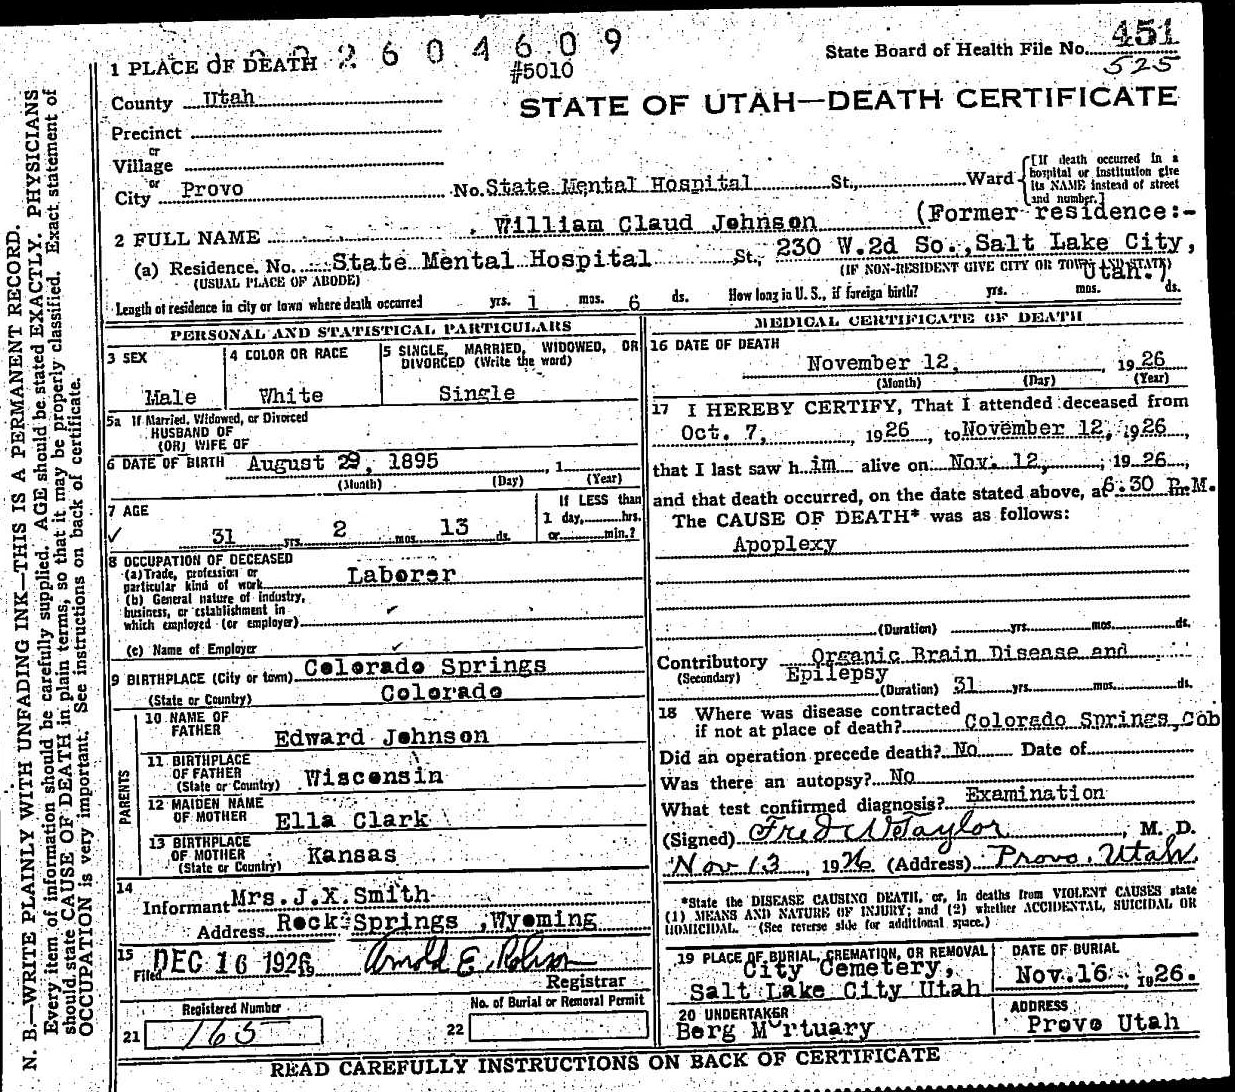 2604609
State Board of Health File No. 451
525
1 PLACE OF DEATH
#5010
County Utah
STATE OF UTAH—DEATH CERTIFICATE
Precinct
or
Village
or
City Provo No. State Mental Hospital St., Ward
[If death occurred in a hospital or institution give its NAME instead of street and number.]
2 FULL NAME William Claud Johnson (Former residence:-
(a) Residence. No. State Mental Hospital St., 230 W.2d So., Salt Lake City,
(USUAL PLACE OF ABODE) (IF NON-RESIDENT GIVE CITY OR TOWN AND STATE) Utah.)
Length of residence in city or town where death occurred yrs. 1 mos. 6 ds. How long in U. S., if foreign birth? yrs. mos. ds.
PERSONAL AND STATISTICAL PARTICULARS
3 SEX
Male
4 COLOR OR RACE
White
5 SINGLE, MARRIED, WIDOWED, OR
DIVORCED (Write the word)
Single
5a If Married, Widowed, or Divorced
HUSBAND OF
(OR) WIFE OF
6 DATE OF BIRTH August 29, 1895, 1
(Month) (Day) (Year)
7 AGE
✓ 31 yrs. 2 mos. 13 ds.
If LESS than
1 day, hrs.
or min.?
8 OCCUPATION OF DECEASED
(a) Trade, profession or
particular kind of work Laborer
(b) General nature of industry,
business, or establishment in ✓
which employed (or employer)
(c) Name of Employer ✓
9 BIRTHPLACE (City or town) Colorado Springs
(State or Country) Colorado
PARENTS
10 NAME OF
FATHER Edward Johnson
11 BIRTHPLACE
OF FATHER
(State or Country) Wisconsin
12 MAIDEN NAME
OF MOTHER Ella Clark
13 BIRTHPLACE
OF MOTHER
(State or Country) Kansas
14
Informant Mrs. J.X. Smith
Address Rock Springs, Wyoming
15
Filed DEC 16 1926 Arnold E. Robison
Registrar
Registered Number
21 165
No. of Burial or Removal Permit
22
MEDICAL CERTIFICATE OF DEATH
16 DATE OF DEATH
November 12, 1926
(Month) (Day) (Year)
17 I HEREBY CERTIFY, That I attended deceased from
Oct. 7, 1926, to November 12, 1926,
that I last saw him alive on Nov. 12, 1926,
and that death occurred, on the date stated above, at 6:30 P.M.
The CAUSE OF DEATH* was as follows:
Apoplexy
(Duration) yrs. mos. ds.
Contributory Organic Brain Disease and
(Secondary) Epilepsy
(Duration) 31 yrs. mos. ds.
18 Where was disease contracted
if not at place of death? Colorado Springs, Colo
Did an operation precede death? No Date of
Was there an autopsy? No
What test confirmed diagnosis? Examination
(Signed) Fred W Taylor, M. D.
Nov 13, 1926 (Address) Provo, Utah.
*State the DISEASE CAUSING DEATH, or, in deaths from VIOLENT CAUSES state
(1) MEANS AND NATURE OF INJURY; and (2) whether ACCIDENTAL, SUICIDAL OR
HOMICIDAL. (See reverse side for additional space.)
19 PLACE OF BURIAL, CREMATION, OR REMOVAL
City Cemetery,
Salt Lake City Utah
DATE OF BURIAL
Nov. 16, 1926.
20 UNDERTAKER
Berg Mortuary
ADDRESS
Provo Utah
READ CAREFULLY INSTRUCTIONS ON BACK OF CERTIFICATE
N. B.—WRITE PLAINLY WITH UNFADING INK—THIS IS A PERMANENT RECORD.
Every item of information should be carefully supplied. AGE should be stated EXACTLY. PHYSICIANS
should state CAUSE OF DEATH in plain terms, so that it may be properly classified. Exact statement of
OCCUPATION is very important. See instructions on back of certificate.